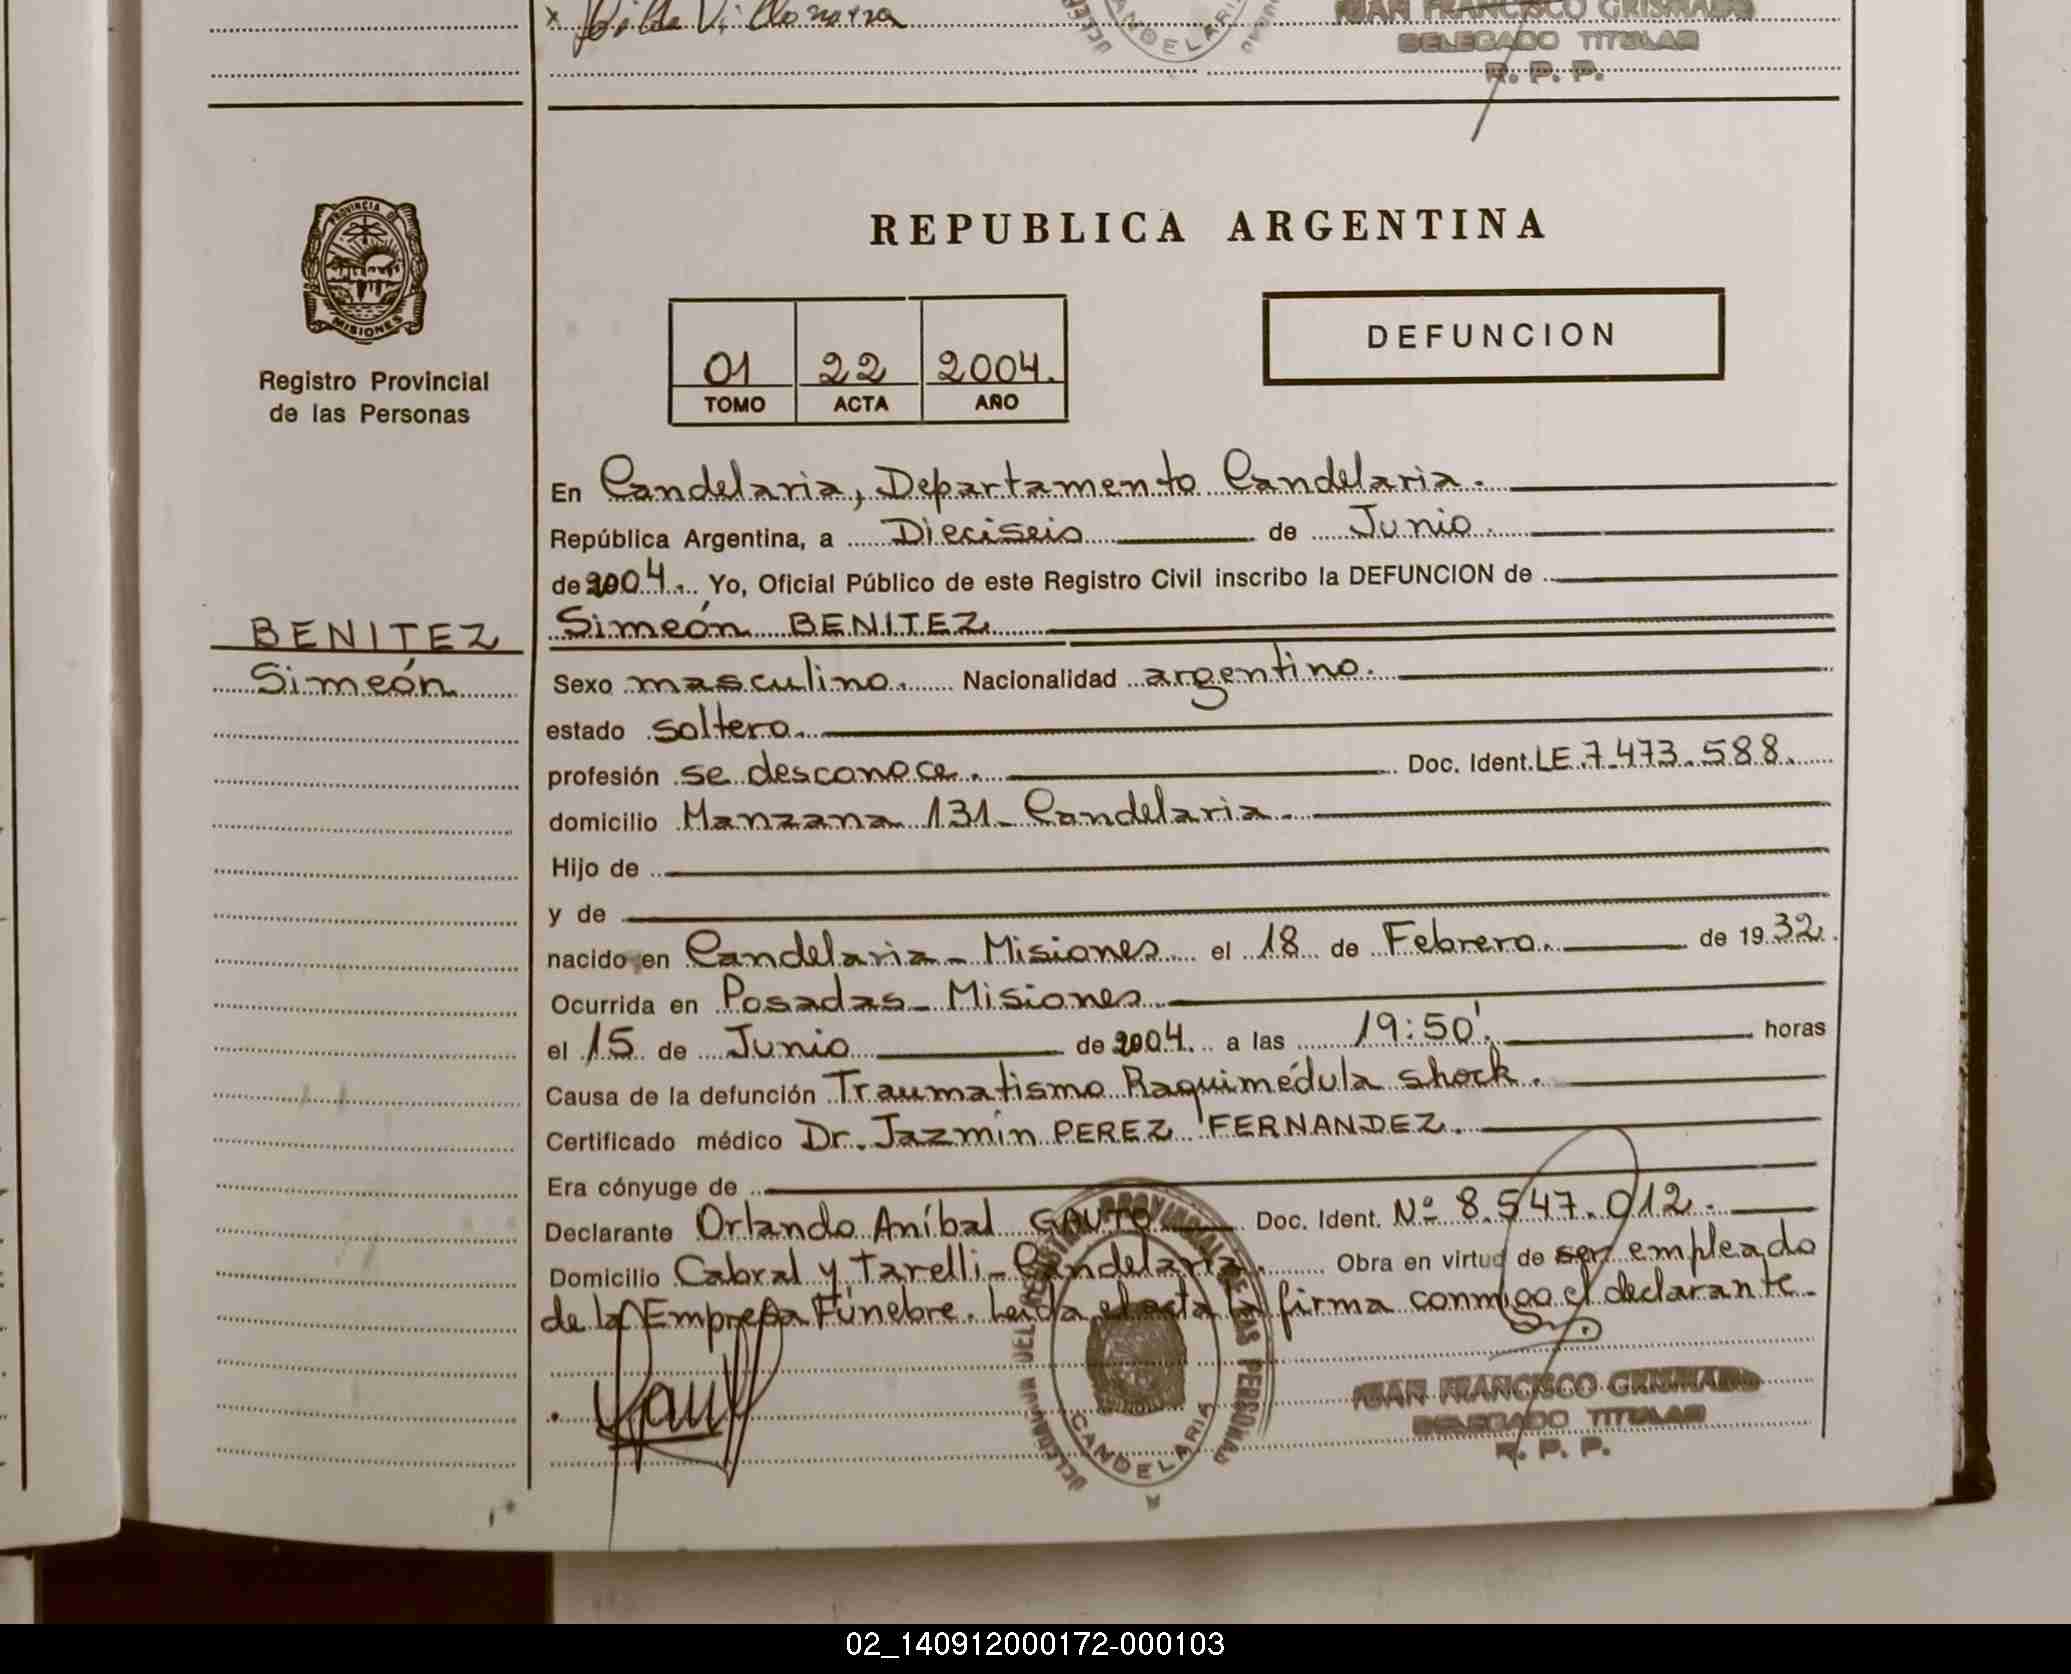 JUAN FRANCISCO GRISMADO
DELEGADO TITULAR
R. P. P.
CANDELARIA
PROVINCIA DE
MISIONES
Registro Provincial
de las Personas
REPUBLICA ARGENTINA
01 22 2004.
TOMO ACTA AÑO
DEFUNCION
En Candelaria, Departamento Candelaria.
República Argentina, a Dieciseis de Junio.
de 2004. Yo, Oficial Público de este Registro Civil inscribo la DEFUNCION de
BENITEZ
Simeón
Simeón BENITEZ
Sexo masculino. Nacionalidad argentino.
estado soltero.
profesión se desconoce. Doc. Ident. LE 7.473.588.
domicilio Manzana 131- Candelaria.
Hijo de
y de
nacido en Candelaria - Misiones el 18 de Febrero. de 1932.
Ocurrida en Posadas - Misiones
el 15 de Junio de 2004. a las 19:50'. horas
Causa de la defunción Traumatismo Raquimédula shock.
Certificado médico Dr. Jazmín PEREZ FERNANDEZ.
Era cónyuge de
Declarante Orlando Aníbal GAUTO Doc. Ident. Nº 8.547.012.
Domicilio Cabral y Tarelli - Candelaria. Obra en virtud de ser empleado
de la Empresa Fúnebre. Leida el acta la firma conmigo el declarante.
REGISTRO PROVINCIAL DE LAS PERSONAS
CANDELARIA
JUAN FRANCISCO GRISMADO
DELEGADO TITULAR
R. P. P.
02_140912000172-000103